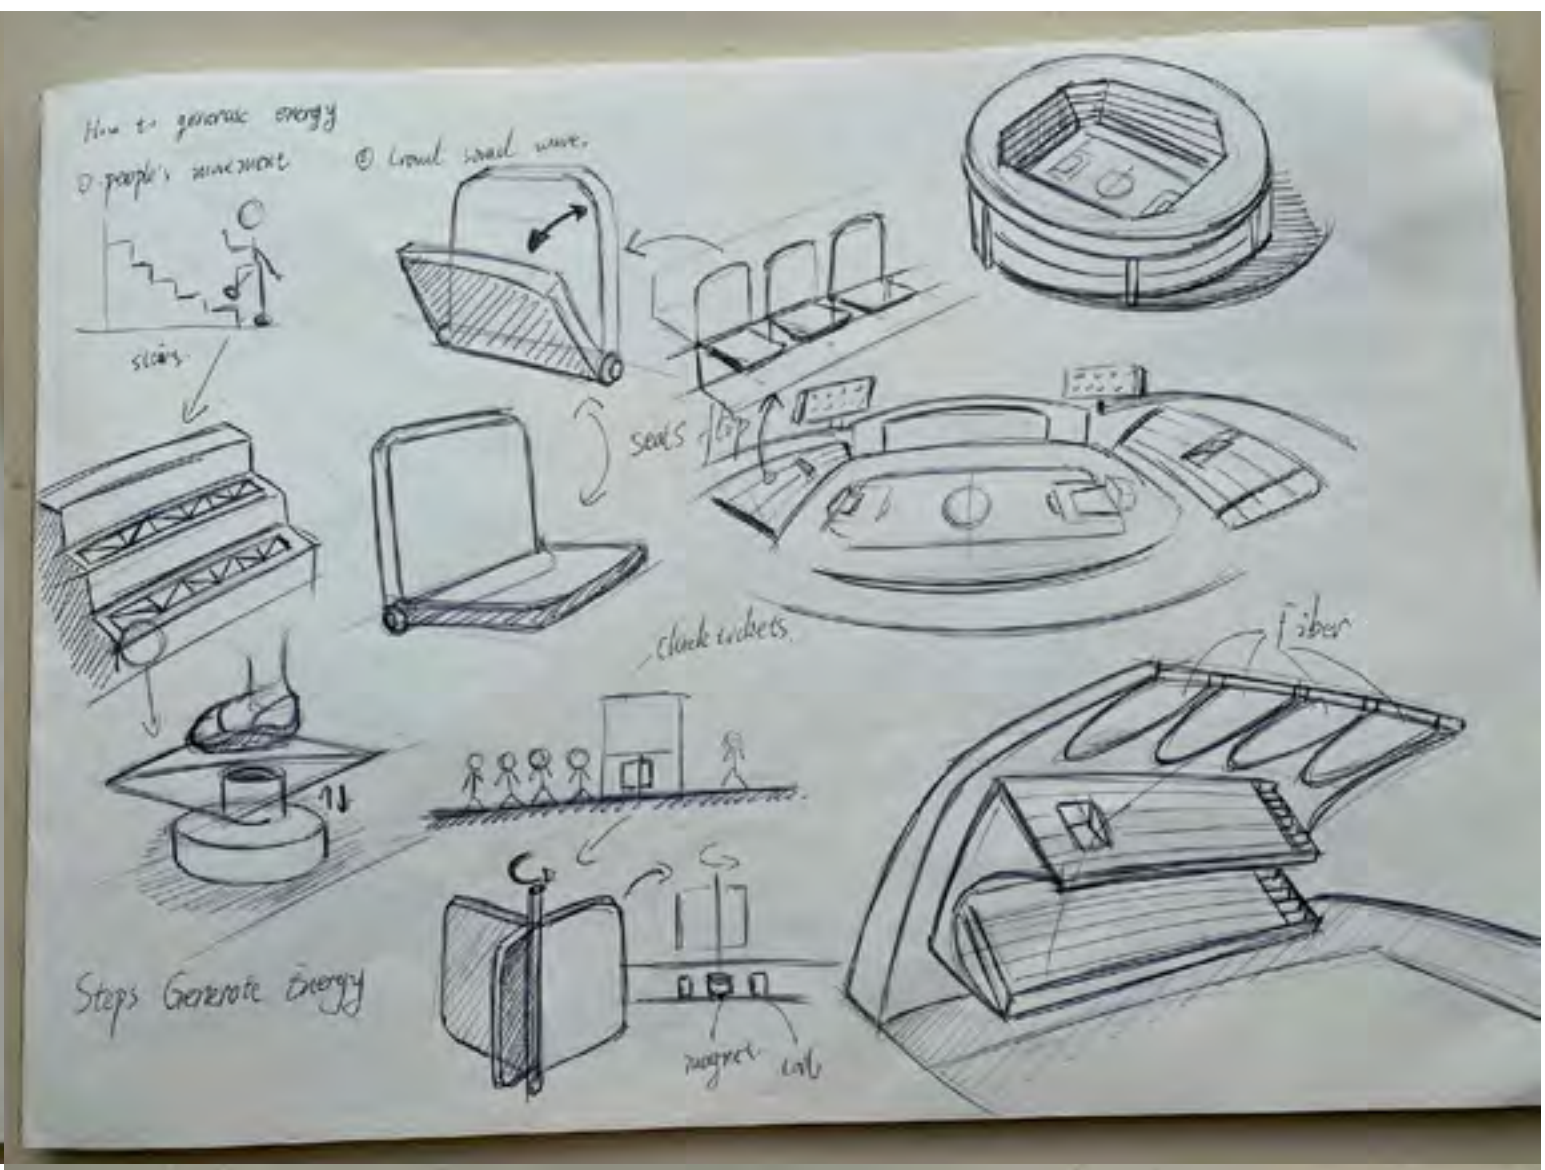 How to generate energy
① people's movement
② Crowd sound wave.
stairs.
seats flip
check tickets.
Fiber
Steps Generate Energy
magnet
coil